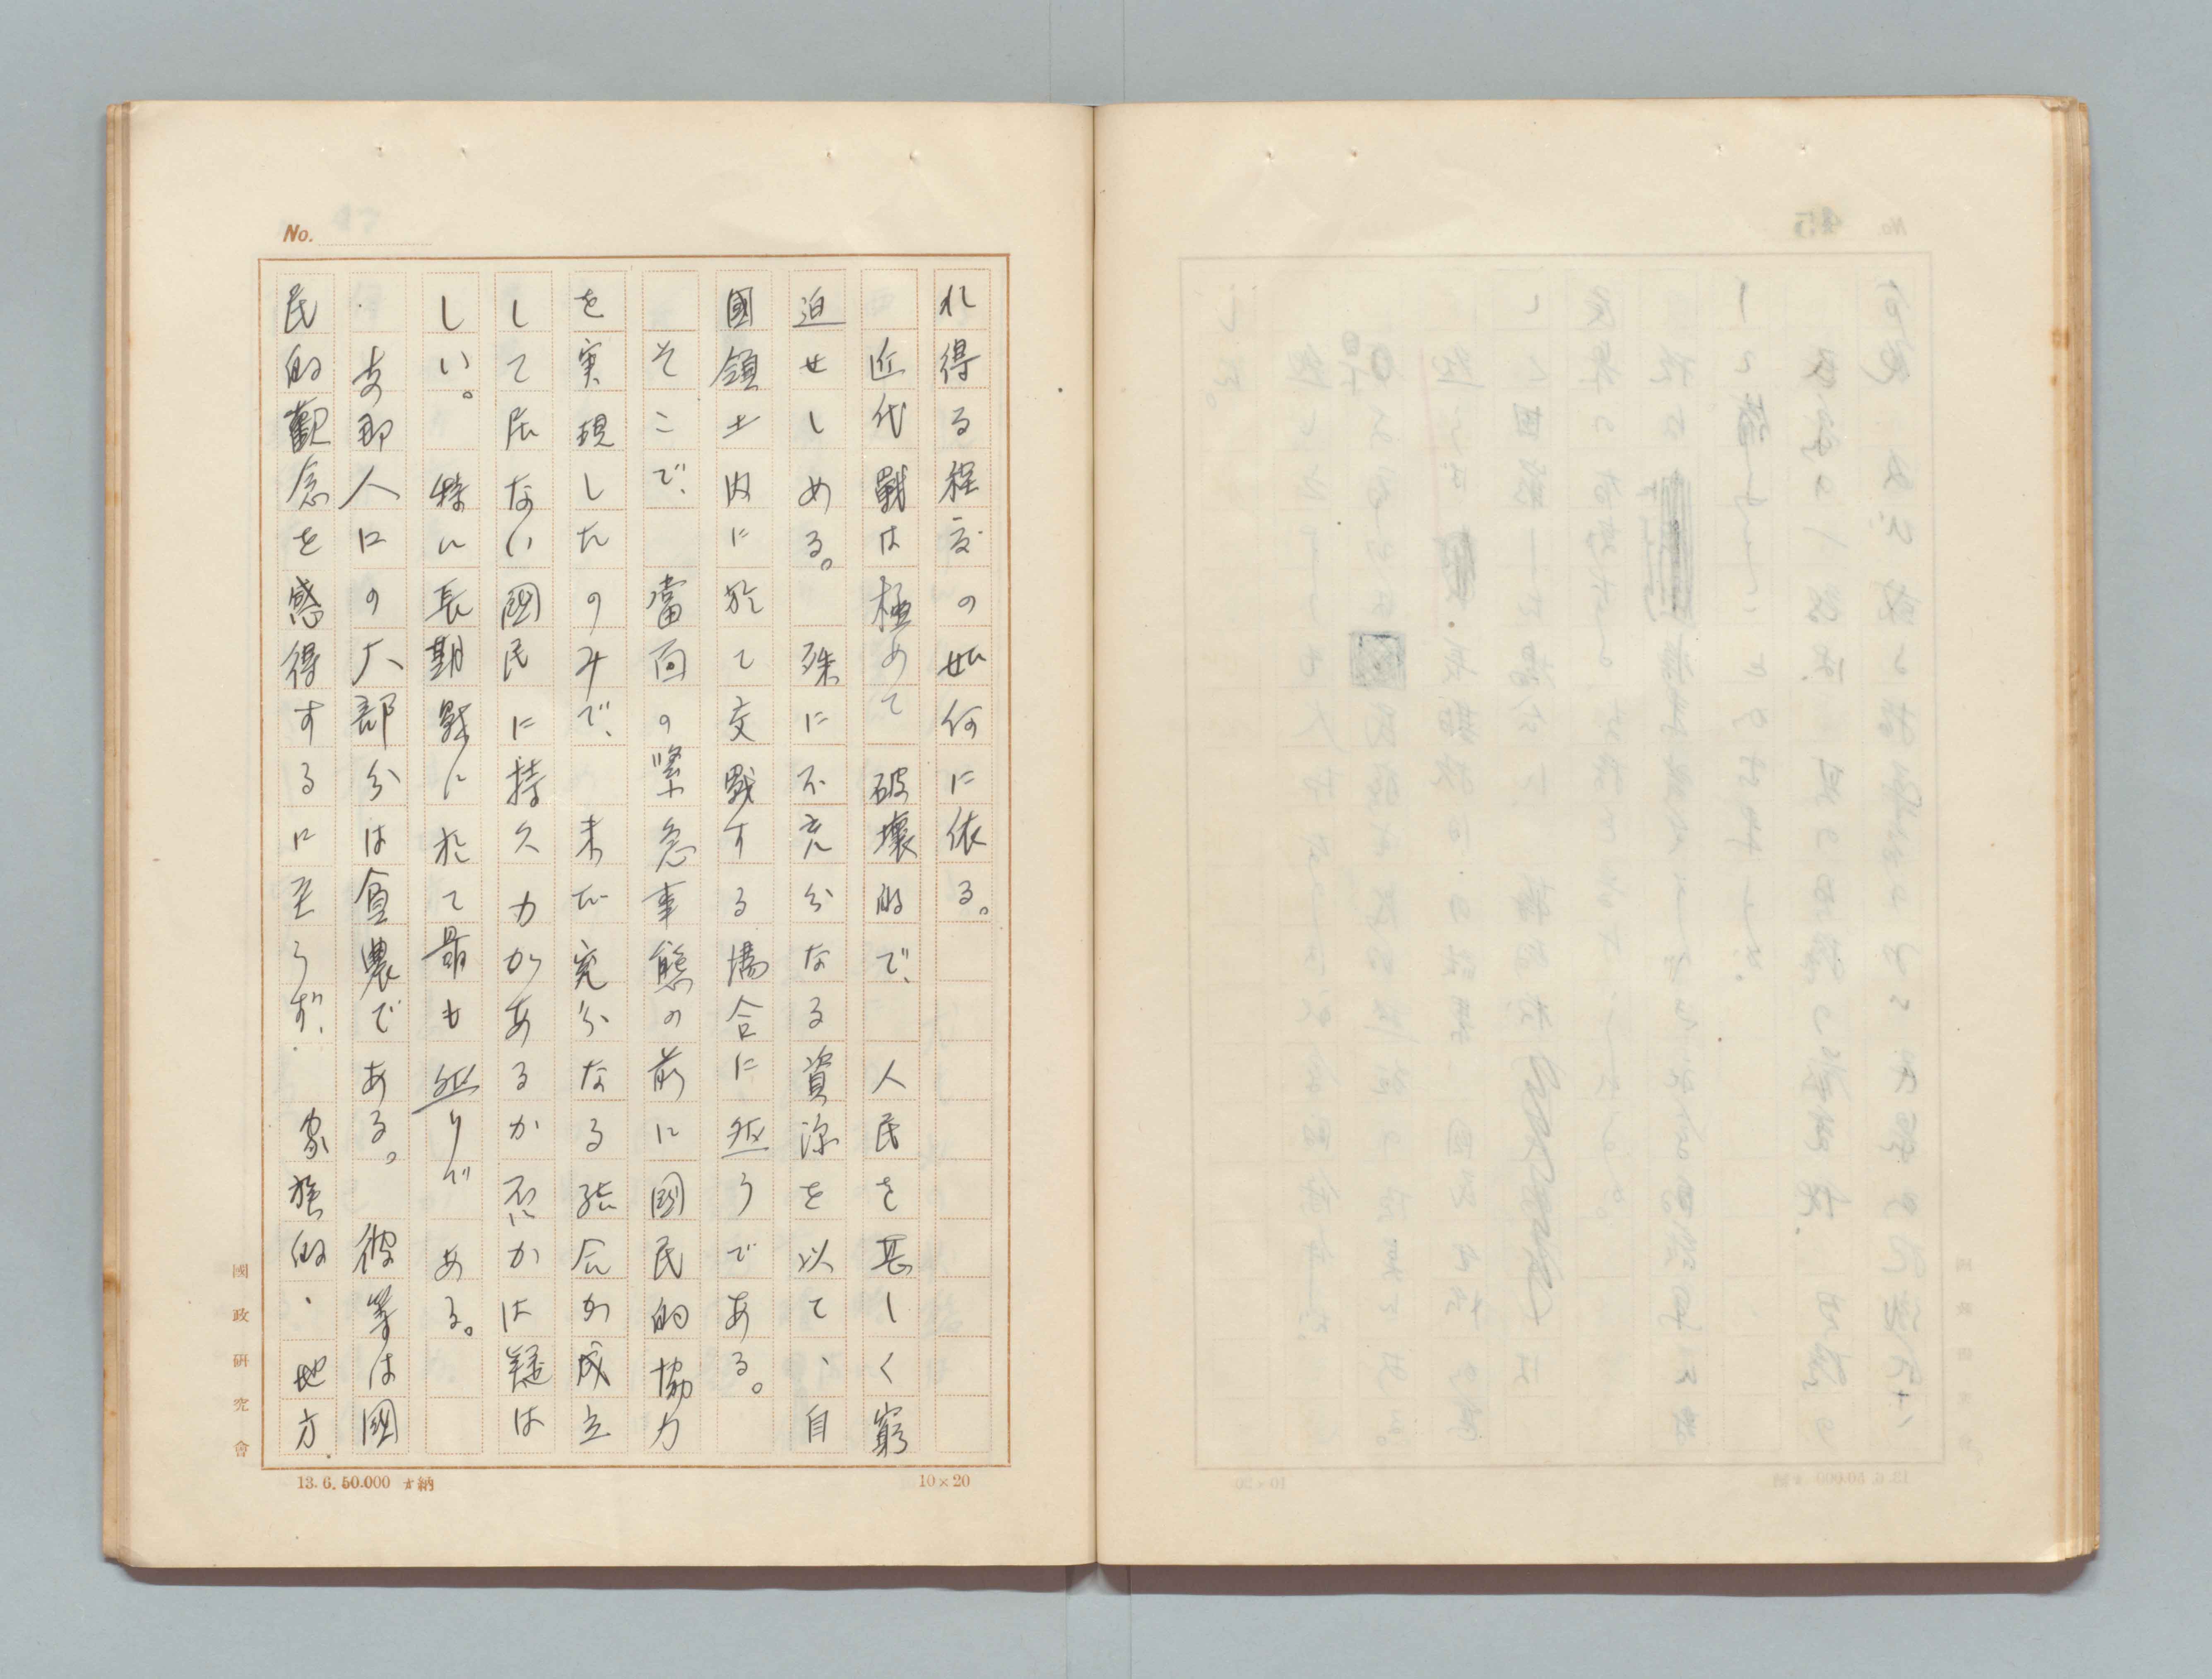 No.
れ得る程度の如何に依る。
近代戰は極めて破壞的で、人民を甚しく窮
迫せしめる。殊に不充分なる資源を以て、自
國領土内に於て交戰する場合に然うである。
そこで、當面の緊急事態の前に國民的協力
を実現したのみで、未だ充分なる結合が成立
して居ない國民に持久力があるか否かは疑は
しい。特に長期戰に於て最も然りである。
支那人口の大部分は貧農である。彼等は國
民的觀念を感得するに至らず、家族的、地方
國政研究會
13.6.50.000 納
10×20